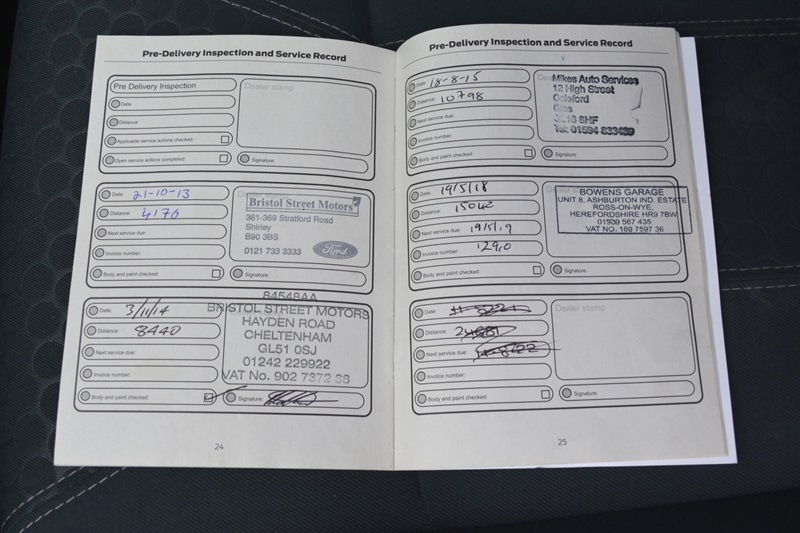 Pre-Delivery Inspection and Service Record
Pre Delivery Inspection
Dealer stamp
Date:
Distance:
Applicable service actions checked:
Open service actions completed:
Signature:
Date: 21-10-13
Distance: 4176
Next service due:
Invoice number:
Body and paint checked:
Bristol Street Motors
361-369 Stratford Road
Shirley
B90 3BS
0121 733 3333
Ford
Signature:
Date: 3/11/14
Distance: 8440
Next service due:
Invoice number:
Body and paint checked:
84548AA
BRISTOL STREET MOTORS
HAYDEN ROAD
CHELTENHAM
GL51 0SJ
01242 229922
VAT No. 902 7372 38
Signature:
24
Pre-Delivery Inspection and Service Record
Date: 18-8-15
Distance: 10798
Next service due:
Invoice number:
Body and paint checked:
Mikes Auto Services
12 High Street
Coleford
Glos
GL16 8HF
Tel: 01594 833439
Signature:
Date: 19/5/18
Distance:
Next service due: 19/5/19
Invoice number: 12910
Body and paint checked:
BOWENS GARAGE
UNIT 8, ASHBURTON IND. ESTATE
ROSS-ON-WYE,
HEREFORDSHIRE HR9 7BW
01989 567 435
VAT NO. 169 7597 36
Signature:
Date:
Distance:
Next service due:
Invoice number:
Body and paint checked:
Dealer stamp
Signature:
25